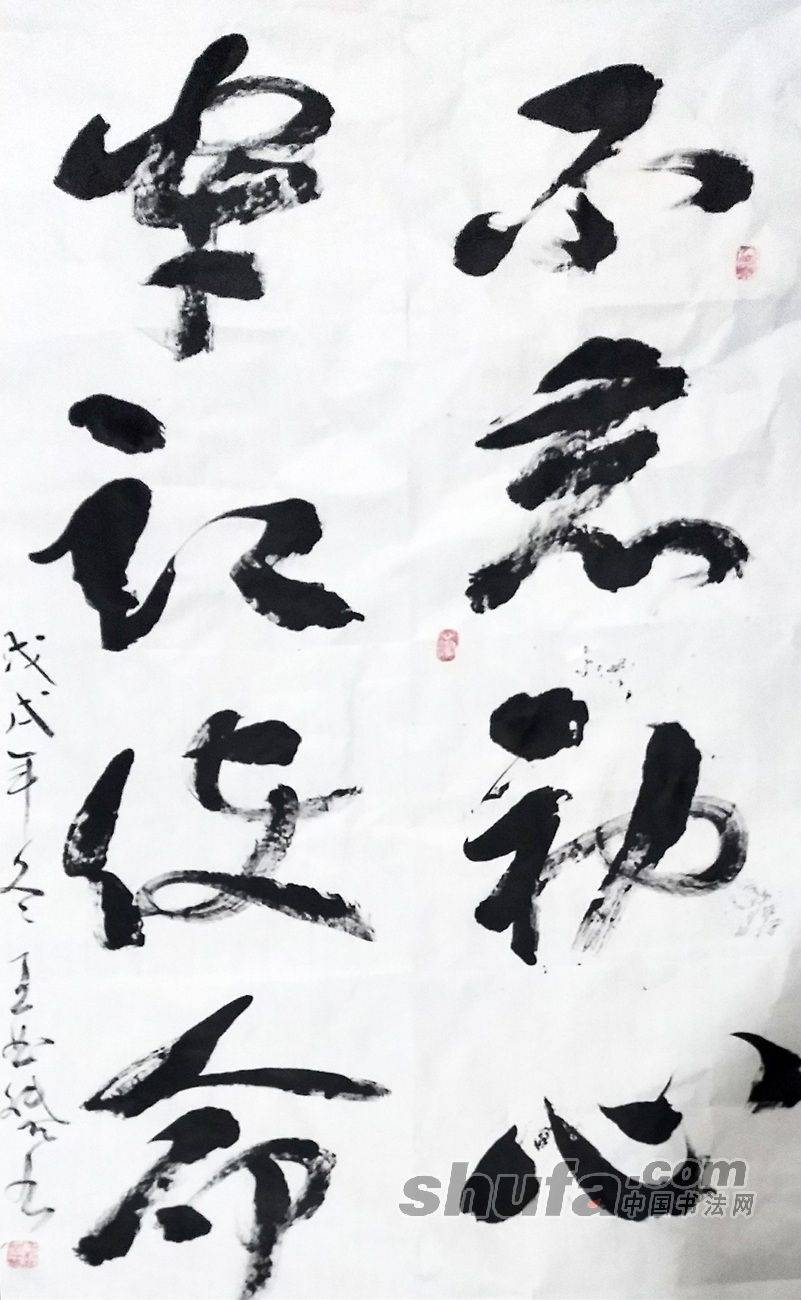 不忘初心
牢记使命
戊戌年冬王
shufa.com
中国书法网